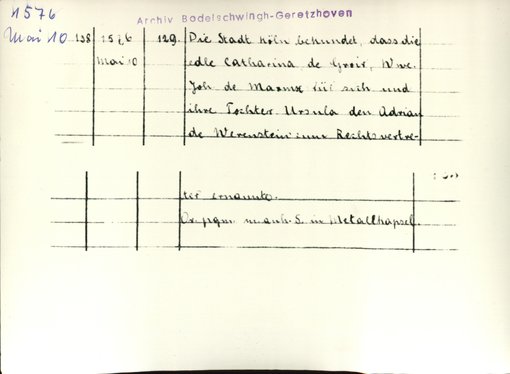 1576
Archiv Bodelschwingh-Geretzhoven
Mai 10 138 1576 129. Die Stadt Köln bekundet, dass die
Mai 10 edle Catharina de Groir, Wwe.
Joh de für sich und
ihre Tochter Ursula den Adrian
de Werenstein zum Rechtsvertre-
ter ernannte.
Or. pgm. m. anh. S. in Metallkapsel.